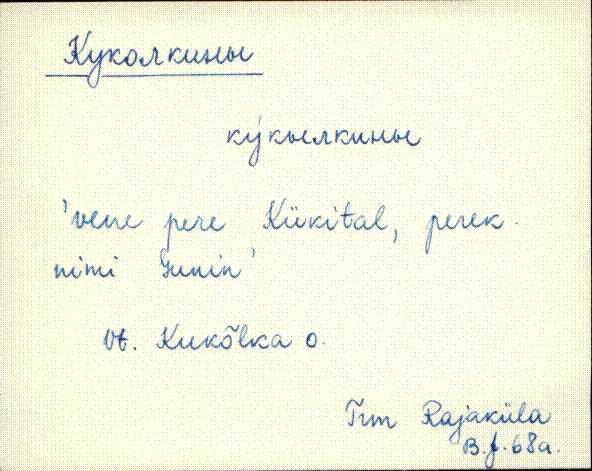 Куколкины
ку́кылкины
'vene pere Kükital, perek.
nimi Junin'
Vt. Kukõlka o.
Trm Rajaküla
B. f. 68a.